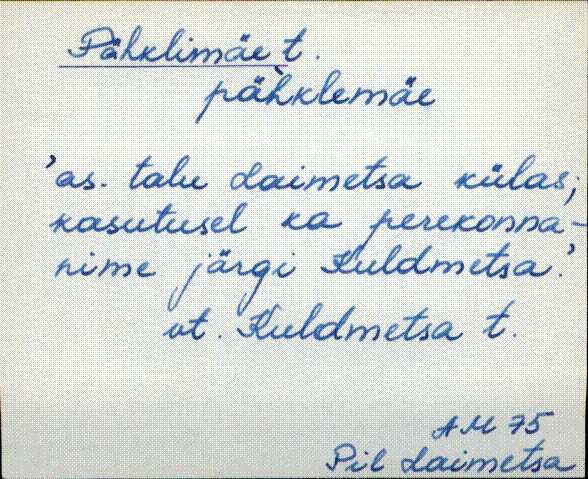 Pähklimäe t.
pä̀hklemäe
'as. talu Laimetsa külas;
kasutusel ka perekonna-
nime järgi Kuldmetsa.'
vt. Kuldmetsa t.
AM 75
Pil Laimetsa